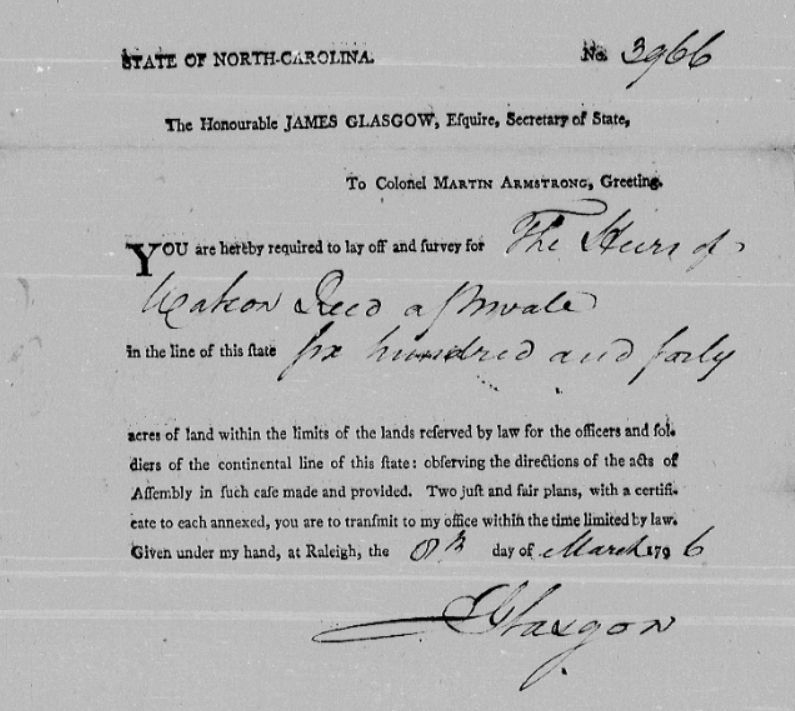 STATE OF NORTH-CAROLINA. No. 3966
The Honourable JAMES GLASGOW, Eſquire, Secretary of State,
To Colonel MARTIN ARMSTRONG, Greeting.
YOU are hereby required to lay off and ſurvey for The Heirs of
Reed a private
in the line of this ſtate ſix hundred and forty
acres of land within the limits of the lands reſerved by law for the officers and ſol-
diers of the continental line of this ſtate: obſerving the directions of the acts of
Aſſembly in ſuch caſe made and provided. Two juſt and fair plans, with a certifi-
cate to each annexed, you are to tranſmit to my office within the time limited by law.
Given under my hand, at Raleigh, the 8th day of March 1796
J Glasgow